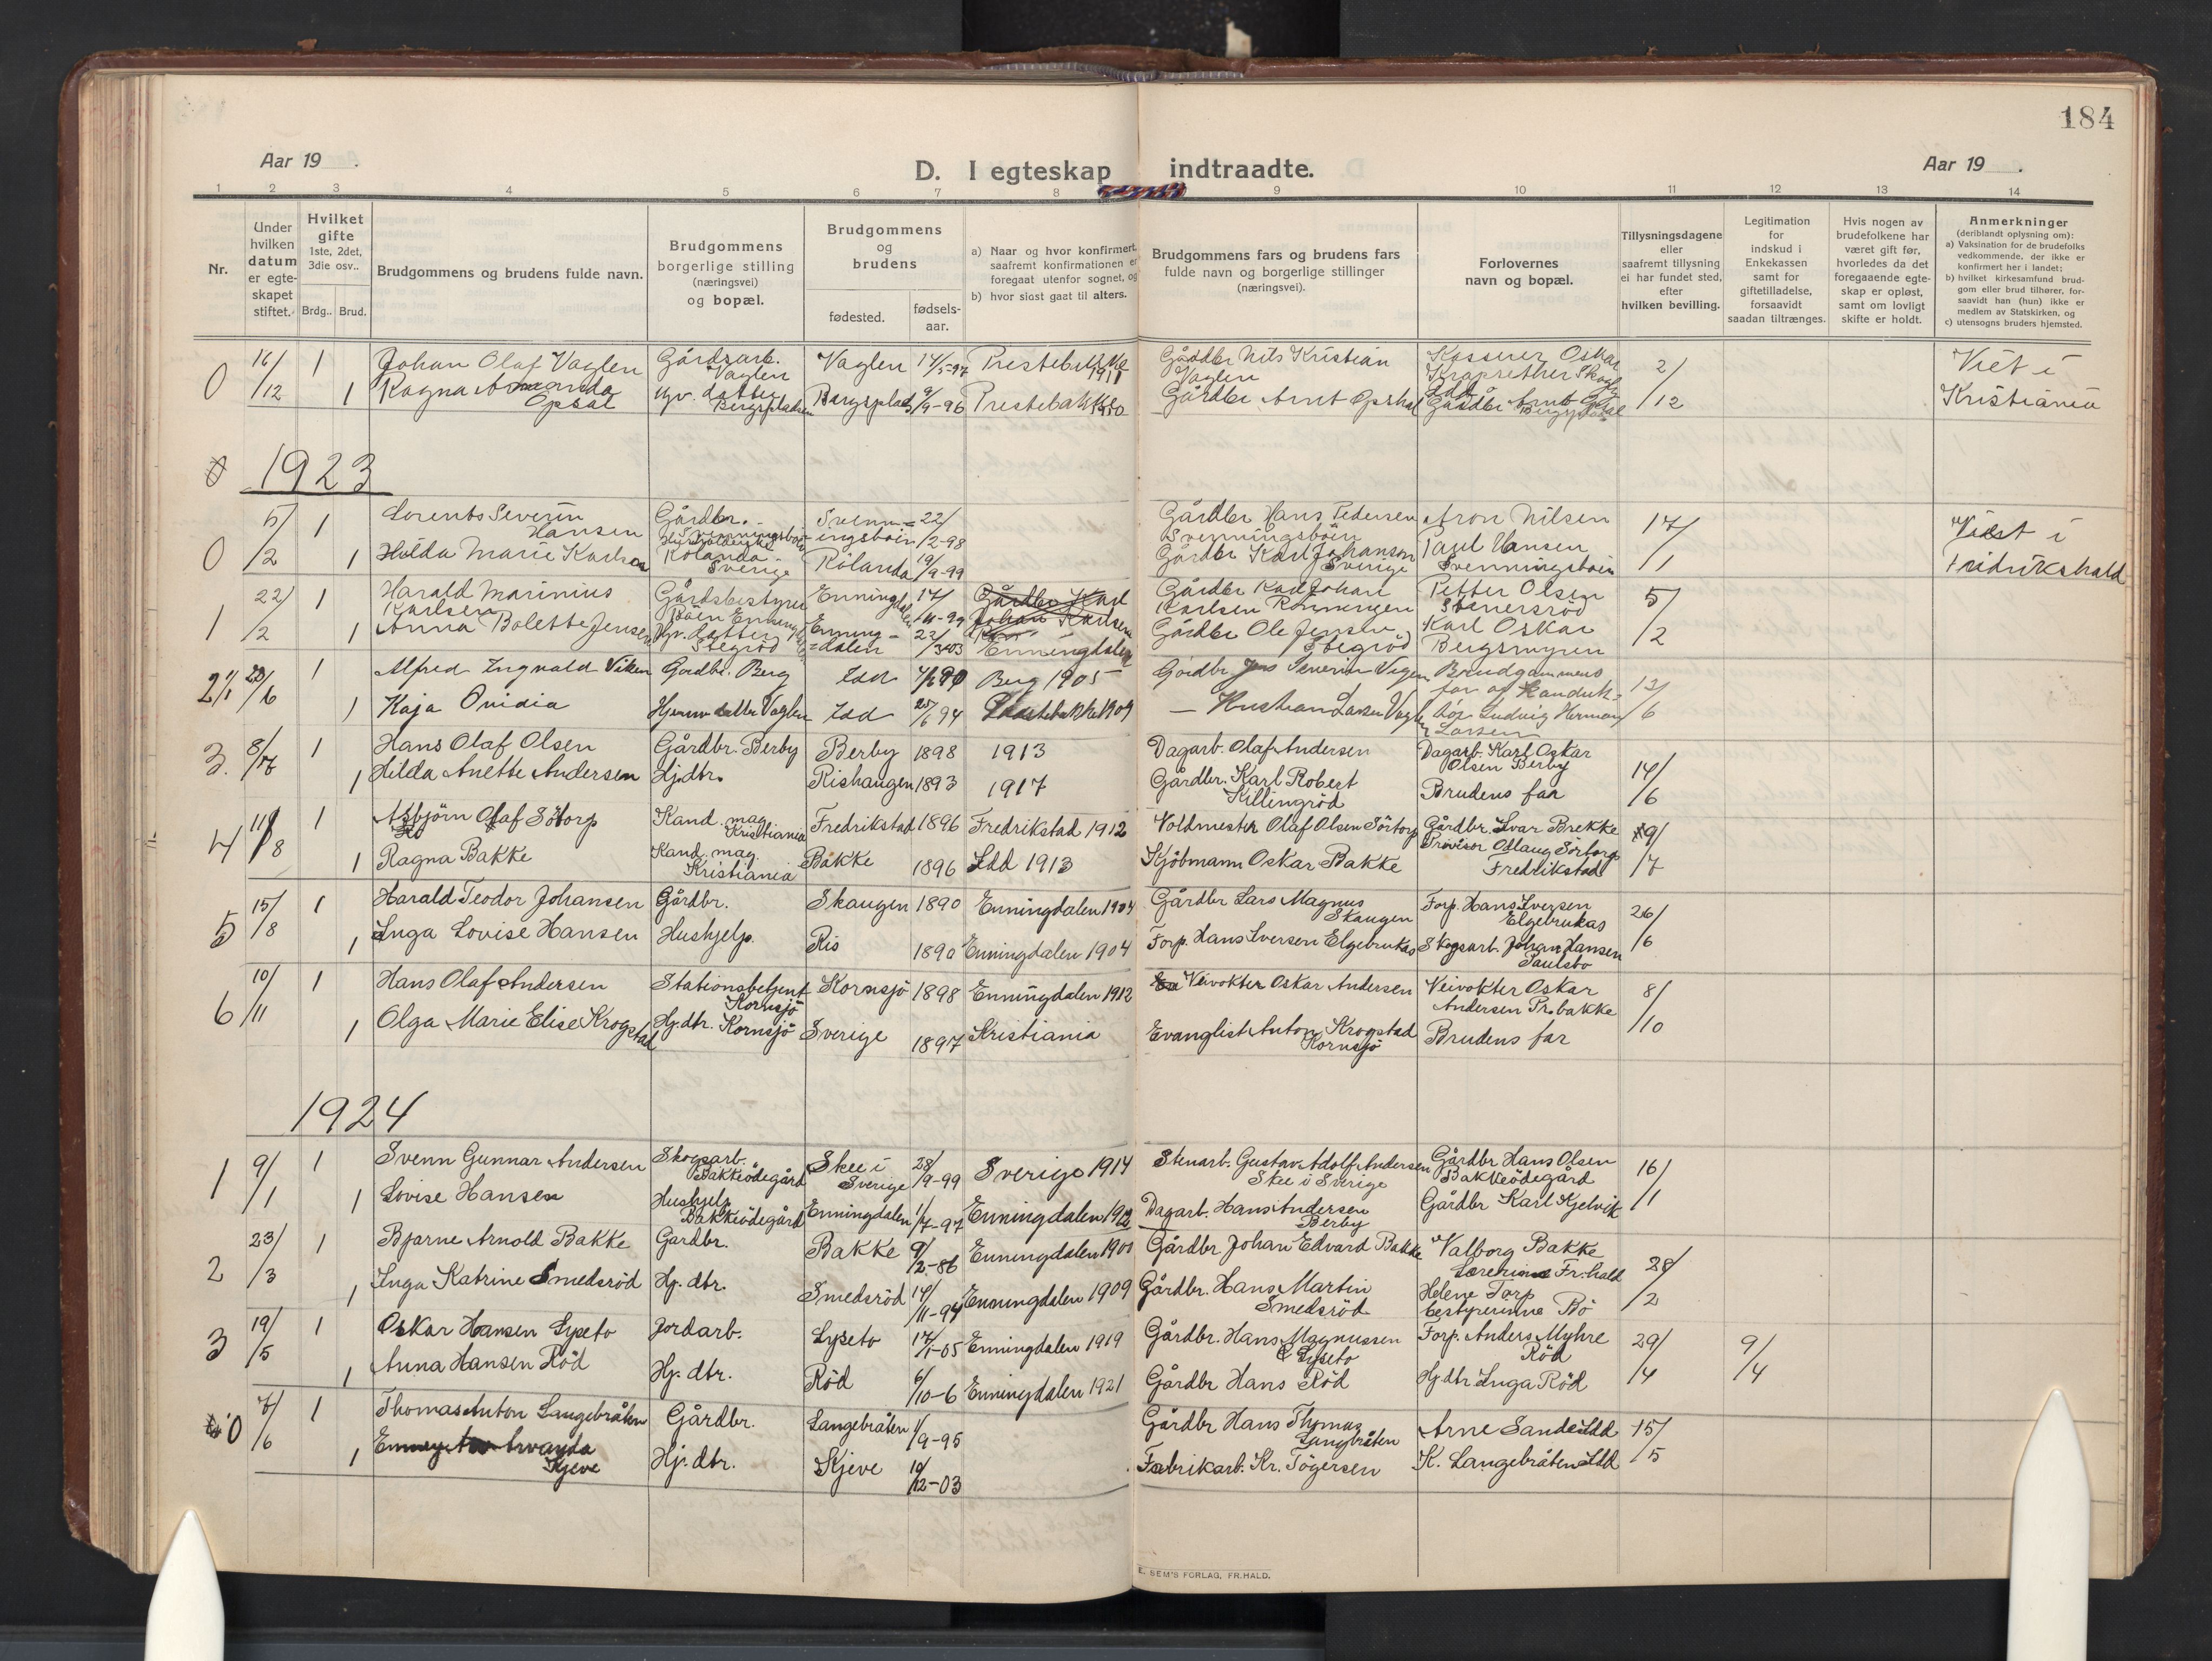 184
Aar 19 .
D. I egteskap indtraadte.
Aar 19 .
1 2 3 4 5 6 7 8 9 10 11 12 13 14
Nr.
Under hvilken datum er egteskapet stiftet.
Hvilket gifte 1ste, 2det, 3die osv..
Brdg.. Brud.
Brudgommens og brudens fulde navn.
Brudgommens borgerlige stilling (næringsvei) og bopæl.
Brudgommens og brudens
fødested.
fødsels-aar.
a) Naar og hvor konfirmert, saafremt konfirmationen er foregaat utenfor sognet, og
b) hvor sidst gaat til alters.
Brudgommens fars og brudens fars fulde navn og borgerlige stillinger (næringsvei).
Forlovernes navn og bopæl.
Tillysningsdagene eller saafremt tillysning ei har fundet sted, efter hvilken bevilling.
Legitimation for indskud i Enkekassen samt for giftetilladelse, forsaavidt saadan tiltrænges.
Hvis nogen av brudefolkene har været gift før, hvorledes da det foregaaende egteskap er opløst, samt om lovligt skifte er holdt.
Anmerkninger (deriblandt oplysning om):
a) Vaksination for de brudefolks vedkommende, der ikke er konfirmert her i landet;
b) hvilket kirkesamfund brudgom eller brud tilhører, forsaavidt han (hun) ikke er medlem av Statskirken, og
c) utensogns bruders hjemsted.
0 16/12 1 Johan Olaf Vaglen Gårdsarb. Vaglen Vaglen 17/5-97 Prestebakke 1911 Gårdbr Nils Kristian Vaglen Kasserer Oskar 2/12 Viet i Kristiania
1 Ragna Amanda Opsal Hjv. datter Bergspladsen Bergsplads 9/9-96 Prestebakke Gårdbr Arnt Opsal Gårdbr Arnt
0 1923
0 5/2 1 Lorents Severin Hansen Gårdbr. Svenningsbøien Svenningsbøien 22/2-98 Gårdbr Hans Pedersen Svenningsbøien Aron Nilsen 17/1 Viest i Fredrikshald
1 Hulda Marie Karlson Rolanda Sverige Rölanda 19/9-99 Gårdbr Karl Johanson Sverige Paul Hansen Svenningsbøien
1 22/2 1 Harald Marinius Karlsen Gårdsbestyrer Böen Enningdalen 17/11-99 Gårdbr Karl Johan Karlsen Gårdbr Karl Johan Karlsen Petter Olsen Stenersröd 5/2
1 Anna Bolette Jensen Hjv. datter Stegröd Enningdalen 22/3-03 Enningdalen Gårdbr Ole Jensen Stegröd Karl Oskar Bergsmyren
2 23/6 1 Alfred Ingvald Viken Gårdbr. Berg Idd 90 Berg 1905 Gårdbr Jens Severin Brudgommens far 13/6
1 Kaja Ovidia Hjemmv datter Vaglen Idd 25/6 94 Prestebakke 1909 Kristian Larsen Ludvig Herman Larsen
3. 8/7 1 Hans Olaf Olsen Gårdbr. Berby Berby 1898 1913 Dagarb. Olaf Andersen Dagarb. Karl Oskar Olsen Berby 14/6
1 Hilda Anette Andersen Hj.dtr. Rishaugen 1893 1917 Gårdbr. Karl Robert Killingröd Brudens far
4 11/8 1 Asbjörn Olaf Sötorp Kand. mag. Kristiania Fredrikstad 1896 Fredrikstad 1912 Voldmester Olaf Olsen Sörtorp Gårdbr. Ivar Brekke 9/7
1 Ragna Bakke Kand. mag. Kristiania Bakke 1896 Idd 1913 Kjöbmann Oskar Bakke Provisor Odlaug Sörtorp Fredrikstad
5 15/8 1 Harald Teodor Johansen Gårdbr. Skaugen 1890 Enningdalen 1904 Gårdbr Lars Magnus Skaugen Forp. Hans Iversen Elgebrukas 26/6
1 Inga Lovise Hansen Hushjelp. Ris 1890 Enningdalen 1904 Forp. Hans Iversen Elgebrukas Skogsarb. Johan Hansen Paulsbo
6 10/11 1 Hans Olaf Andersen Stationsbetjent Kornsjö Kornsjö 1898 Enningdalen 1912 Veivokter Oskar Andersen Veivokter Oskar Andersen Pr.bakke 8/10
1 Olga Marie Elise Krogstad Hj.dtr. Kornsjö Sverige 1897 Kristiania Evanglist Anton Krogstad Kornsjö Brudens far
1924
1 9/1 1 Svenn Gunnar Andersen Skogsarb. Bakkeödegård Skee i Sverige 28/9-99 Sverige 1914 Stenarb. Gustav Adolf Andersen Skee i Sverige Gårdbr Hans Olsen Bakkeödegård 16/1
1 Lovise Hansen Hushjelp Bakkeödegård Enningdalen 1/7-97 Enningdalen 1912 Dagarb. Hans Andersen Berby Gårdbr Karl Kjelvik
2 23/3 1 Bjarne Arnold Bakke Gardbr. Bakke 9/2-86 Enningdalen 1900 Gårdbr Johan Edvard Bakke Valborg Bakke Lærerinne Fr.hald 28/2
1 Inga Katrine Smedsröd Hj. dtr. Smedsröd 14/11-94 Enningdalen 1909 Gårdbr. Hans Martin Smedsröd Helene Torp bestyrerinne Bö
3 19/5 1 Oskar Hansen Lyseto Jordarb. Lyseto 17/1-05 Enningdalen 1919 Gårdbr. Hans Magnussen Lyseto Forp. Anders Myhre Röd 29/4 9/4
1 Anna Hansen Röd Hj. dtr. Röd 6/10-6 Enningdalen 1921 Gårdbr Hans Röd Hj.dtr Inga Röd
0 7/6 1 Thomas Anton Langebråten Gårdbr. Langebråten 1/9-95 Gårdbr Hans Thomas Langbråten Arne Sande Idd 15/5
1 Emmy Arvayda Skjeve Hj. dtr. Skjeve 10/12-03 Fabrikarb. Kr. Tögersen K. Langebråten Idd
E. SEM'S FORLAG, FR.HALD.